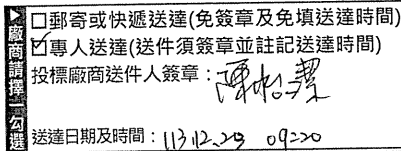 ▶廠商請擇一勾選
□郵寄或快遞送達(免簽章及免填送達時間)
☑專人送達(送件須簽章並註記送達時間)
投標廠商送件人簽章：陳
送達日期及時間：113.12.20 09:20